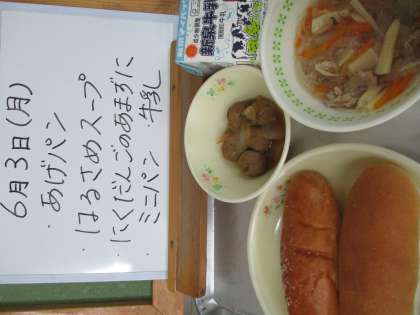 6月3日(月)
・あげパン
・はるさめスープ
・にくだんごのあまずに
・ミニパン ・牛乳